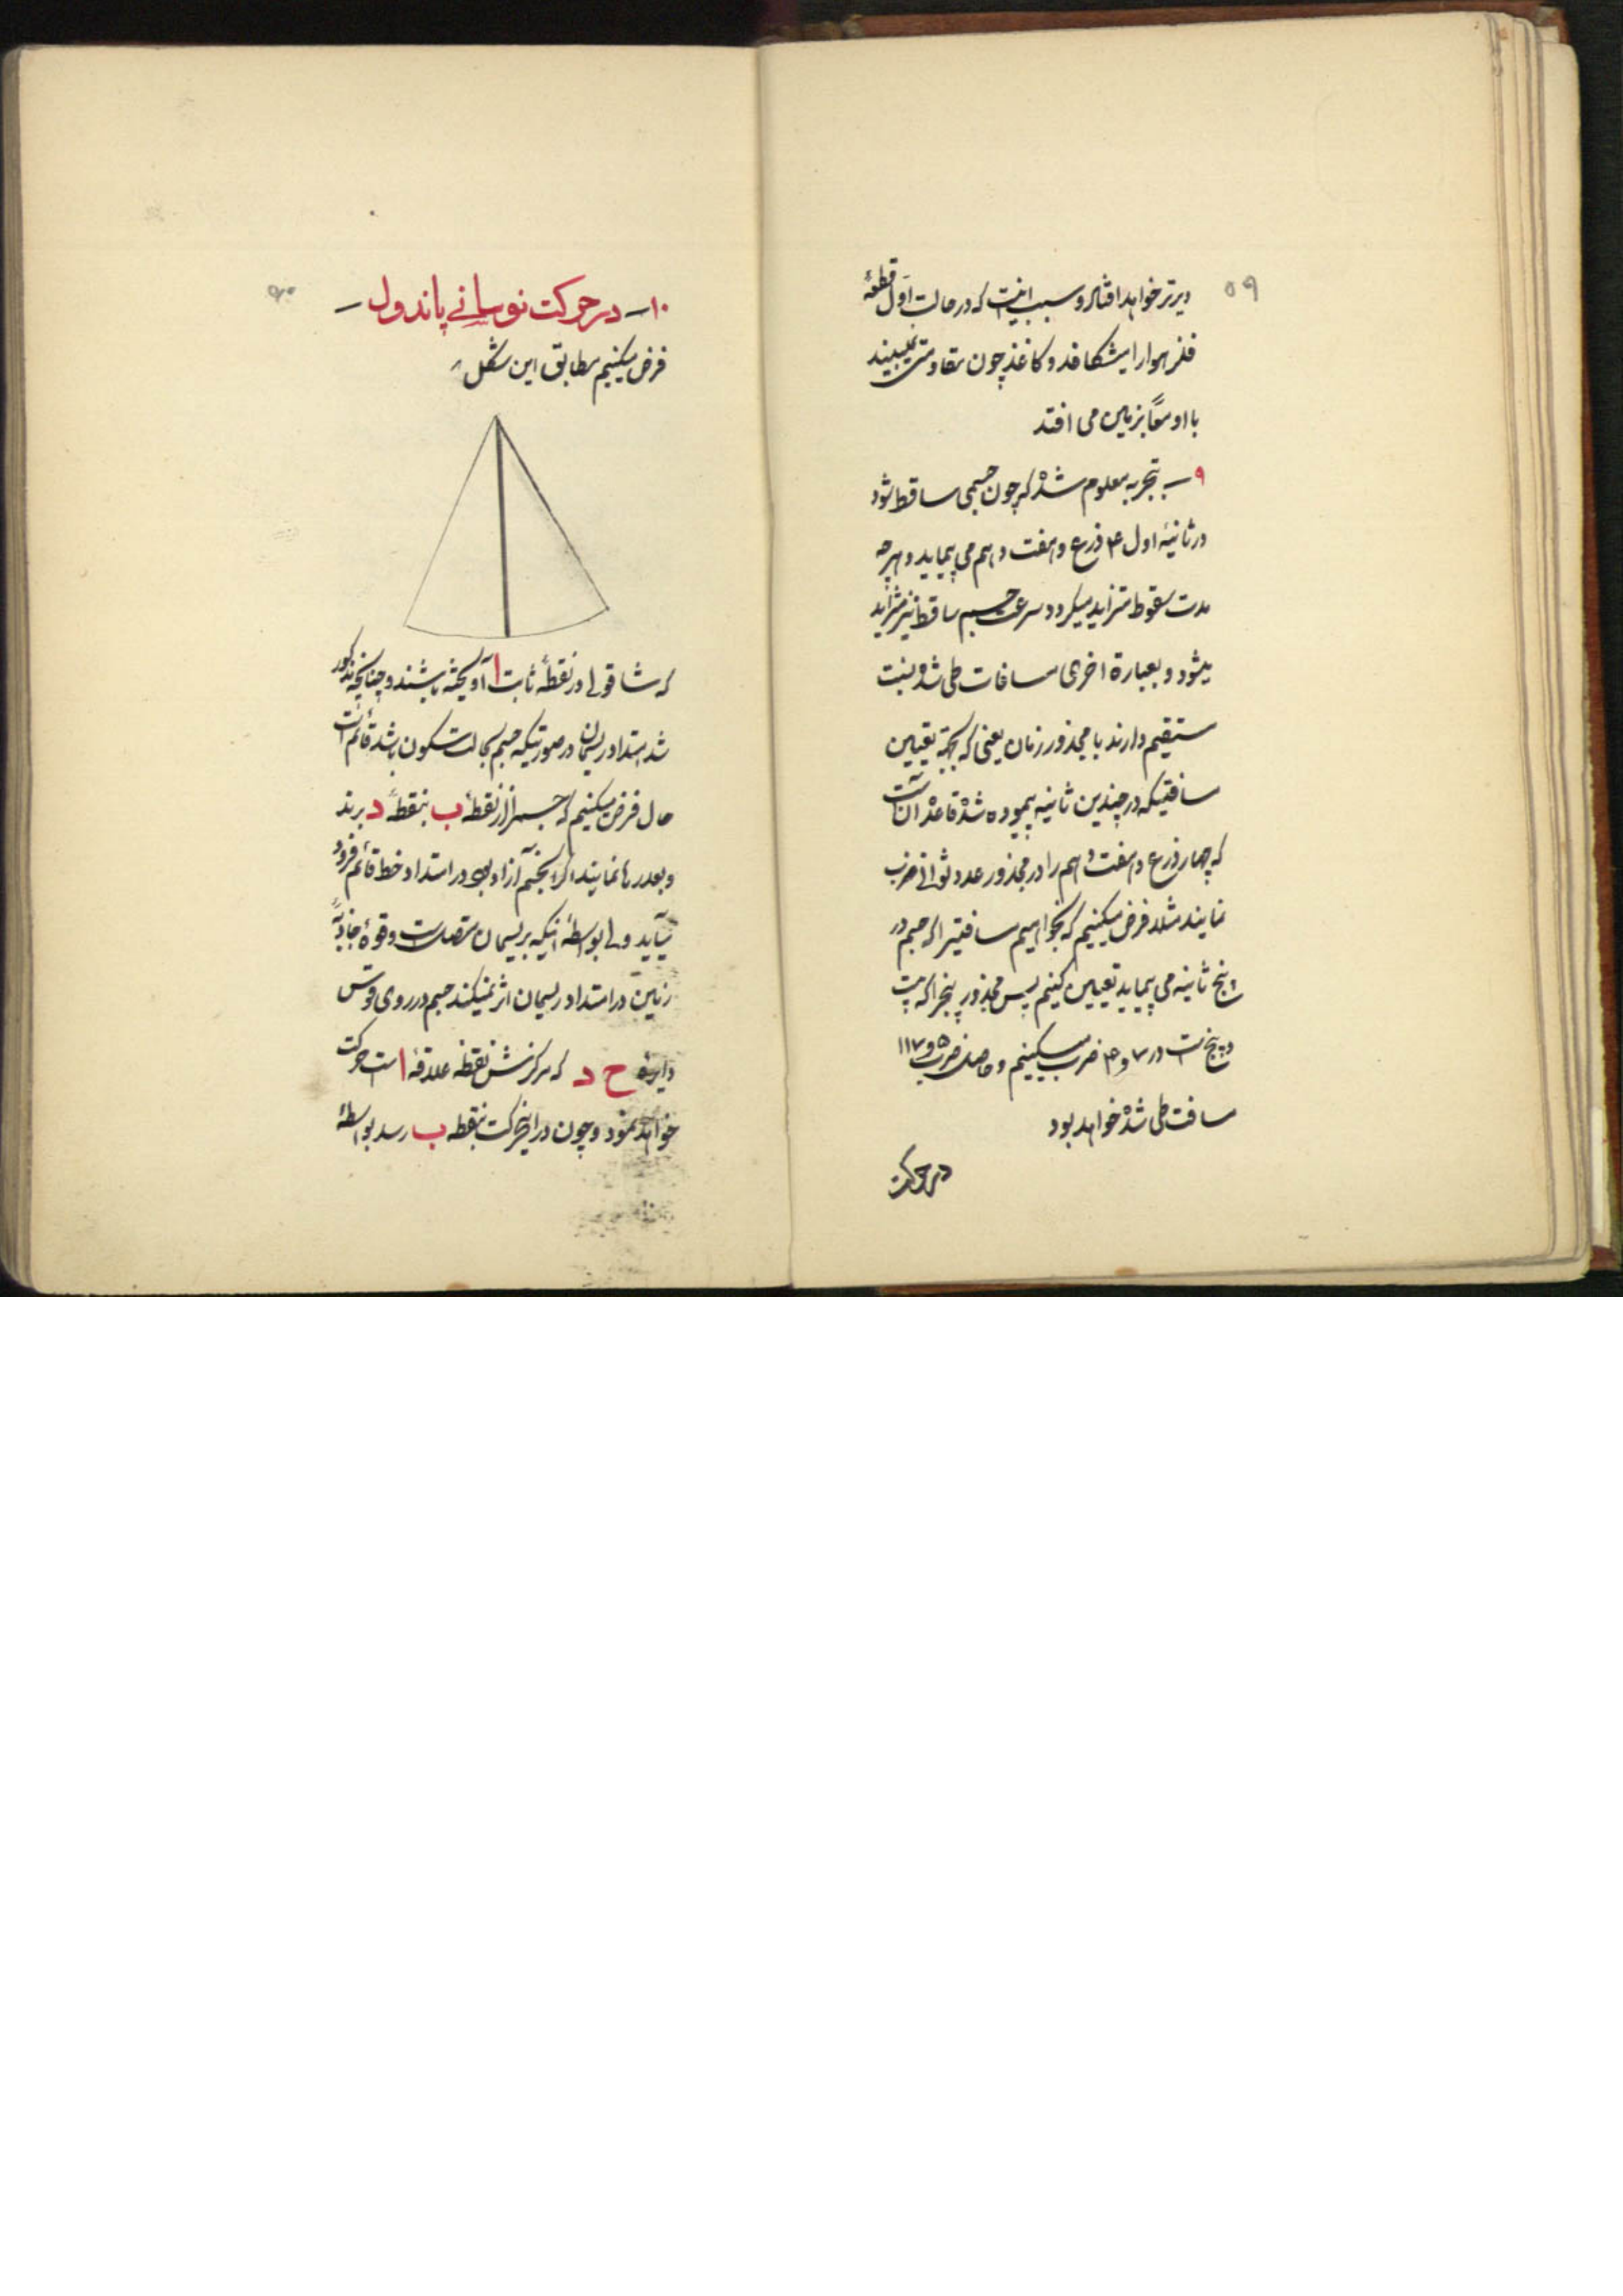 ۵۹
دیرتر خواهد افتاد و سبب اینست که در حالت اول قطعهٔ
فلز هوا را میشکافد و کاغذ چون مقاومتی نمیبیند
با او معاً بزمین می افتد
۹ ــ بتجربه معلوم شده که چون جسمی ساقط شود
در ثانیهٔ اول ۴ ذرع و هفت دهم می پیماید و هر چه
مدت سقوط متزاید میگردد سرعت جسم ساقط نیز متزاید
میشود و بعبارة اخری مسافات طی شده نسبت
مستقیم دارند با مجذور زمان یعنی که بجهة تعیین
مسافتیکه در چندین ثانیه پیموده شده قاعده آن است
که چهار ذرع و هفت دهم را در مجذور عدد ثوانی ضرب
نمایند مثلا فرض میکنیم که بخواهیم مسافتیرا که جسم در
پنج ثانیه می پیماید تعیین کنیم پس مجذور پنجرا که بیست
و پنج است در ۷ و ۴ ضرب میکنیم و حاصل ضرب ۵ و ۱۱۷
مسافت طی شده خواهد بود
در حرکت
۶۰
۱۰ــ در حرکت نوسانی پاندول ــ
فرض میکنیم مطابق این شکل
که شاقولی در نقطهٔ ثابت ا آویخته باشند و چنانچه مذکور
شد امتداد ریسمان در صورتیکه جسم بحالت سکون باشد قائم است
حال فرض میکنیم که جسمرا از نقطهٔ ب بنقطهٔ د برند
و بعد رها نمایند اگر اینجسم آزاد بود در امتداد خط قائم فرود
میآید ولی بواسطهٔ اینکه بریسمان متصل است و قوهٔ جاذبهٔ
زمین در امتداد ریسمان اثر نمیکند جسم در روی قوس
دایره ح د که مرکزش نقطه علاقهٔ ا است حرکت
خواهد نمود و چون در این حرکت بنقطه ب رسد بواسطهٔ